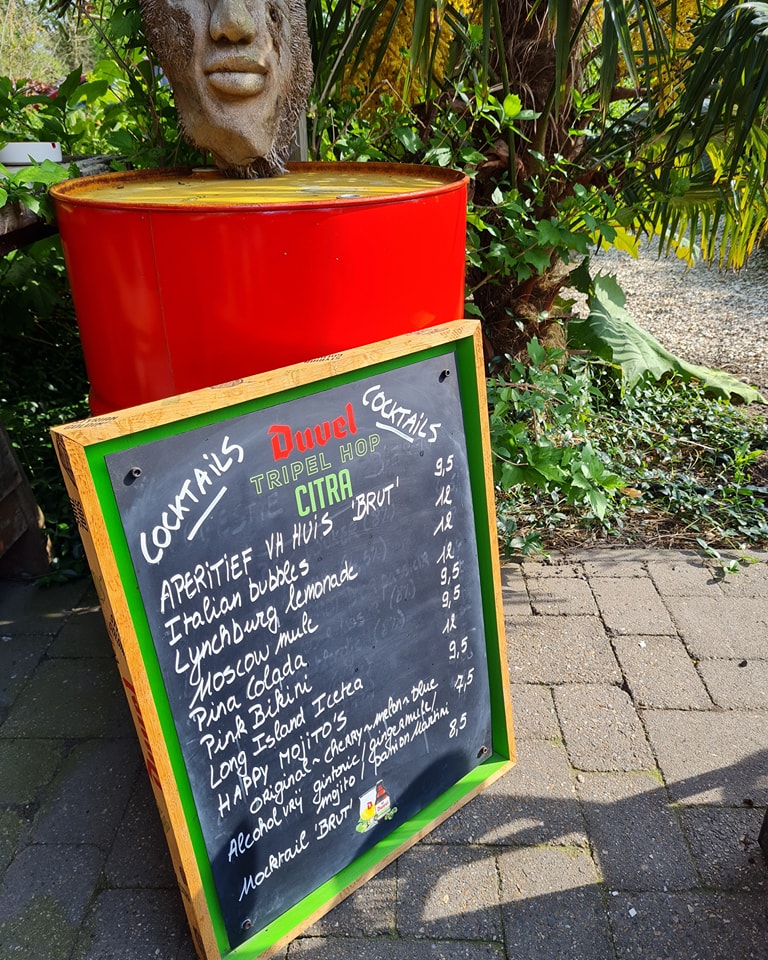 COCKTAILS
Duvel
COCKTAILS
TRIPEL HOP
CITRA
APERITIEF VH HUIS 'BRUT' 9,5
Italian bubbles 12
Lynchburg lemonade 12
Moscow mule 12
Pina Colada 9,5
Pink Bikini 9,5
Long Island Icetea 12
HAPPY MOJITO'S 9,5
Original ~ cherry ~ melon ~ blue
Alcohol vrij gintonic / gingermule / 7,5
mojito / passion Martini
Mocktail 'BRUT' 8,5